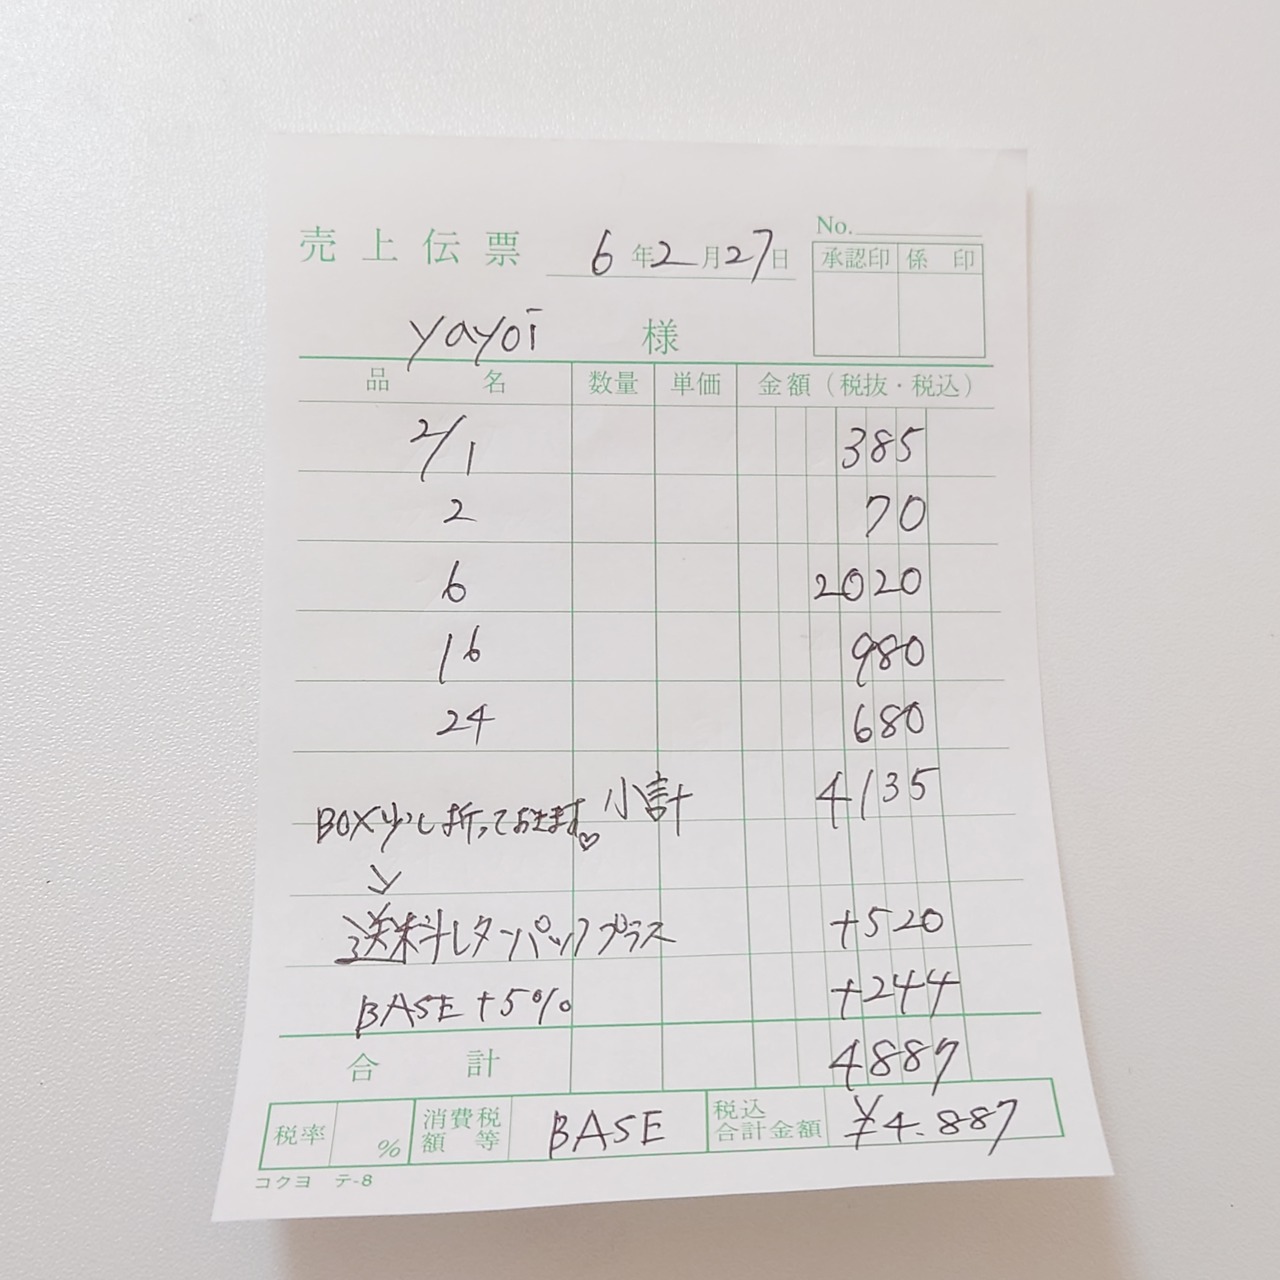 No.
売上伝票 6年2月27日
承認印 係印
yayoi 様
品名 数量 単価 金額（税抜・税込）
2/1 385
2 70
6 2020
16 980
24 680
小計 4135
BOX少し折っておきます♡
送料レターパックプラス +520
BASE +5% +244
合計 4887
税率 % 消費税額等 BASE 税込合計金額 ¥4.887
コクヨ テ-8